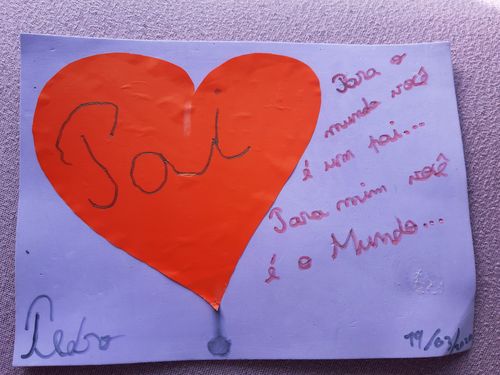 Pai
Para o
mundo você
é um pai...
Para mim você
é o Mundo...
Pedro
19/03/2020